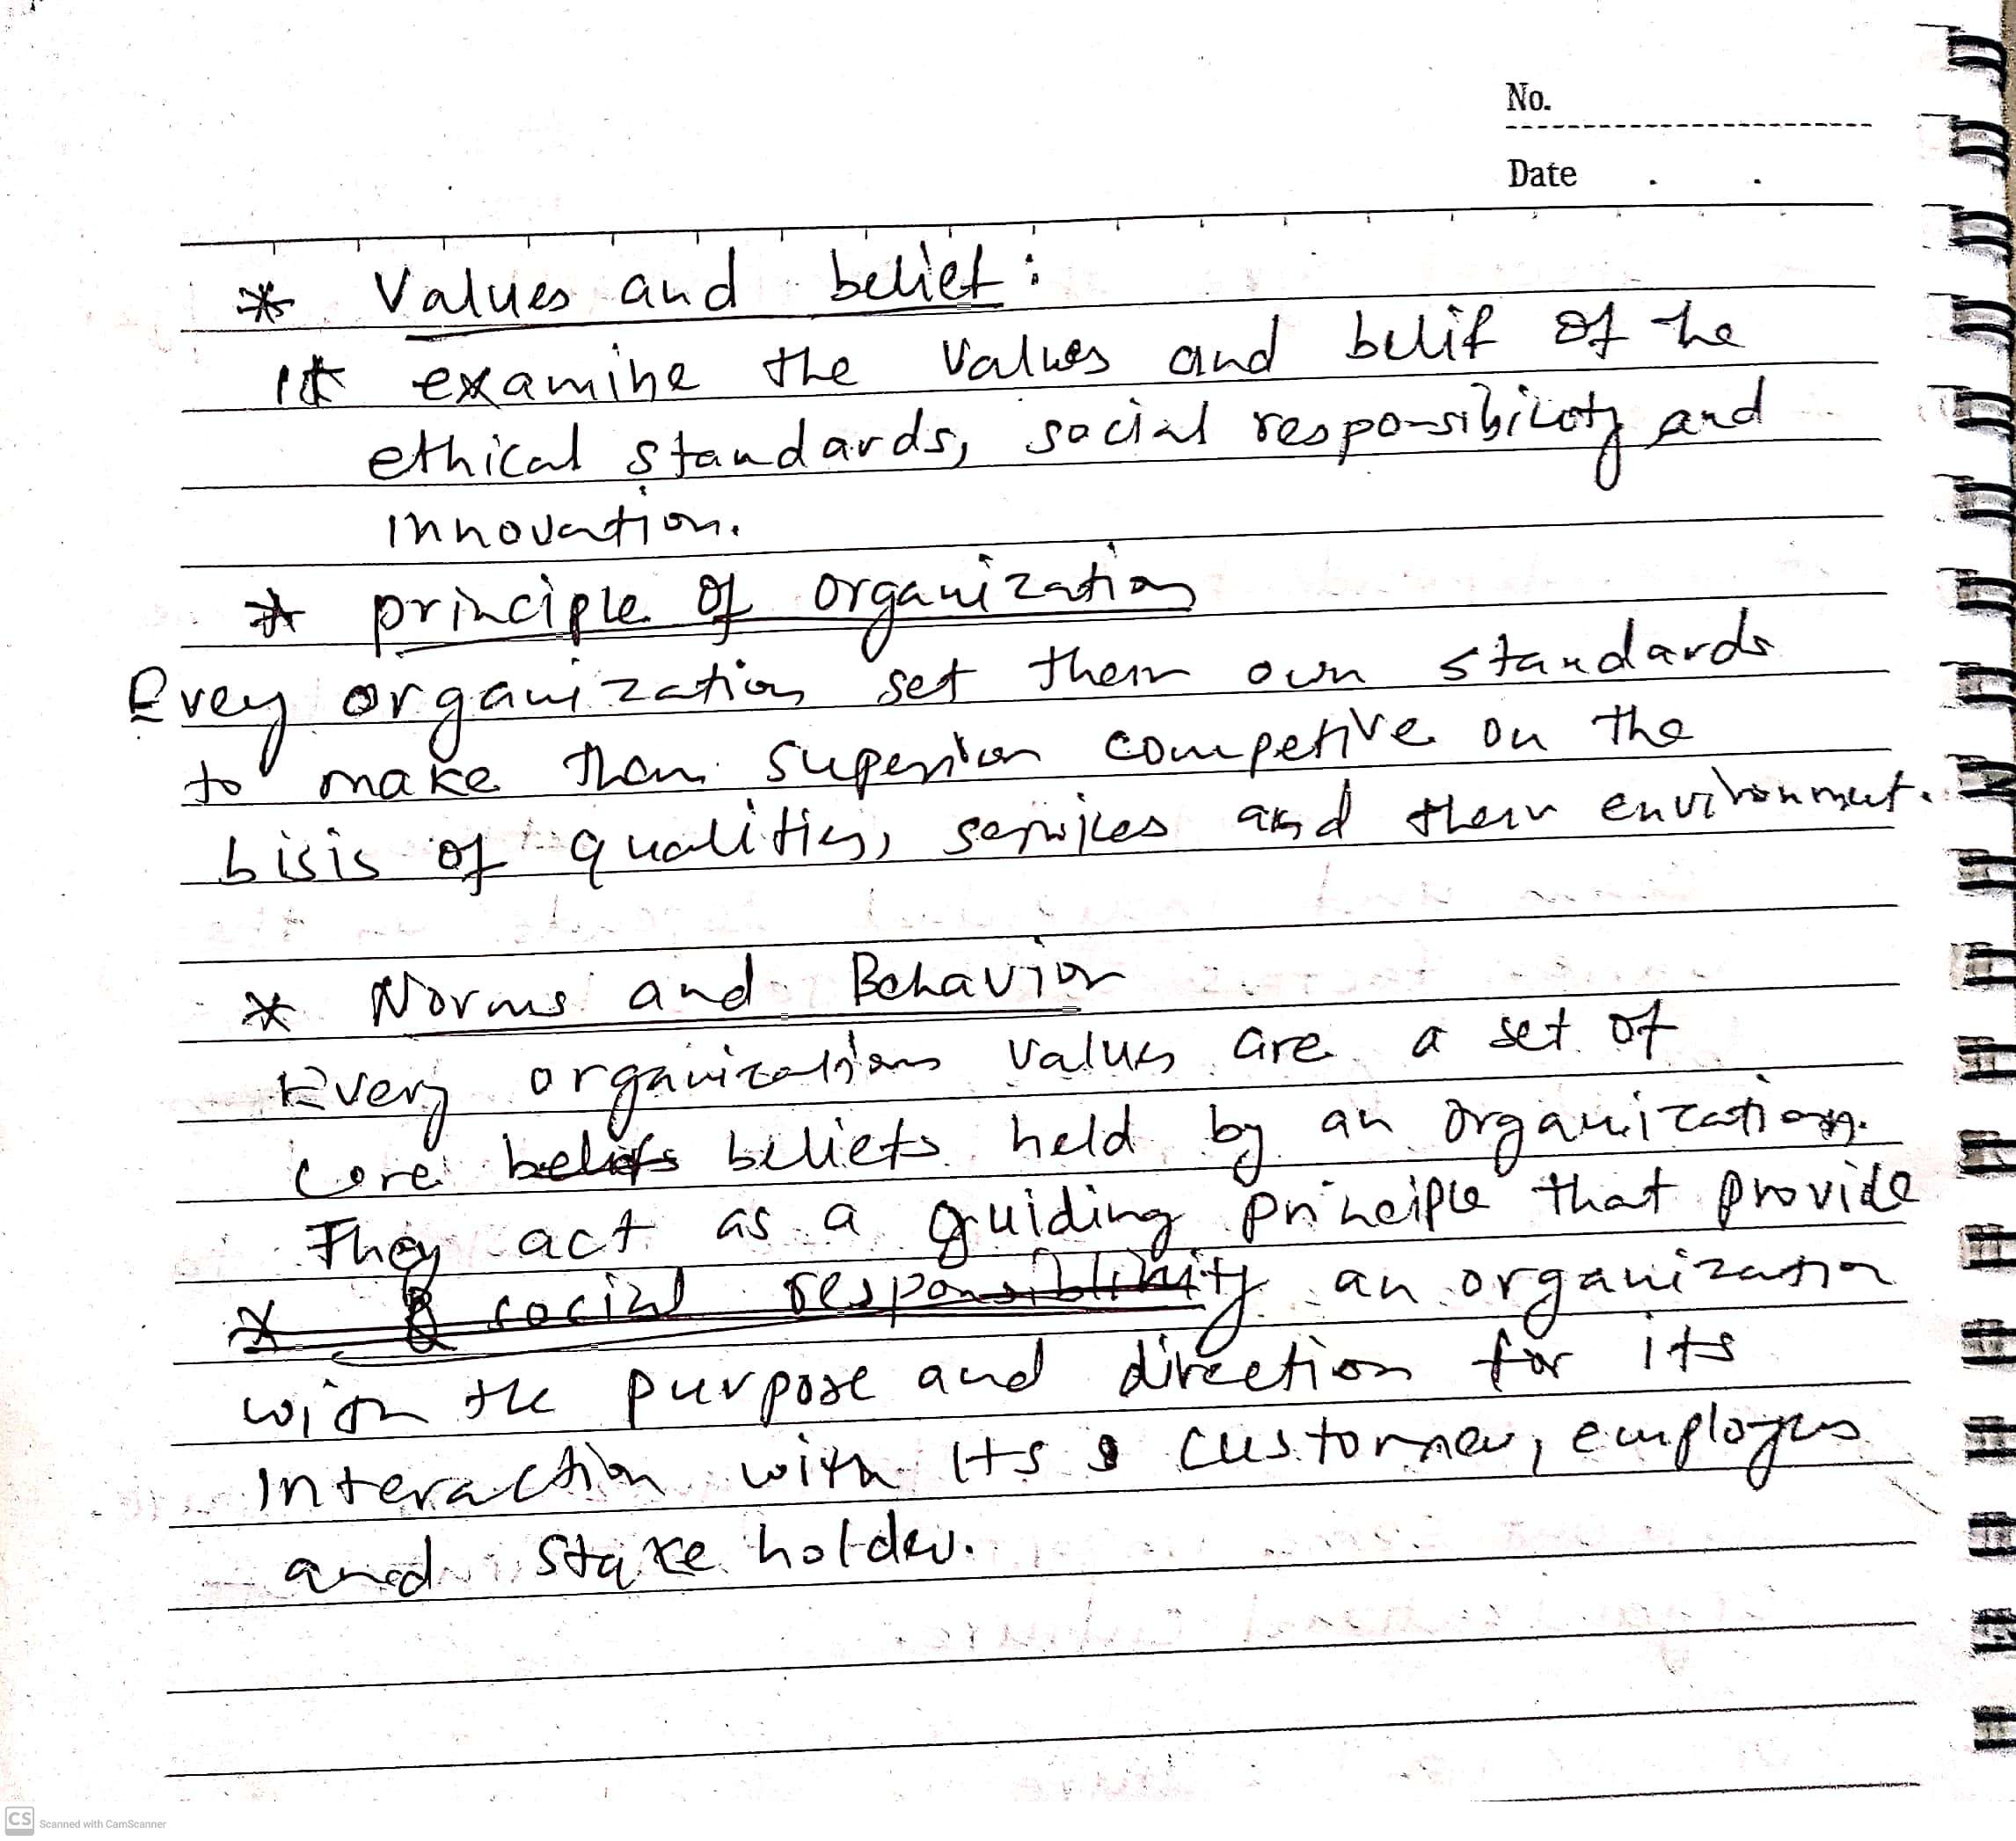 No.
Date . .
* Values and belief :
It examine the values and belif of the
ethical standards, social responsibility and
innovation.
* principle of organization
Evey organization set their own standards
to make them superior competive on the
bisis of qualities, services and their environment.
* Norms and Behavior
Every organizations values are a set of
core beliefs held by an organization.
They act as a guiding principle that provide
* social responsiblinity an organization
with the purpose and direction for its
interaction with its customer, employes
and stake holder.
CS Scanned with CamScanner